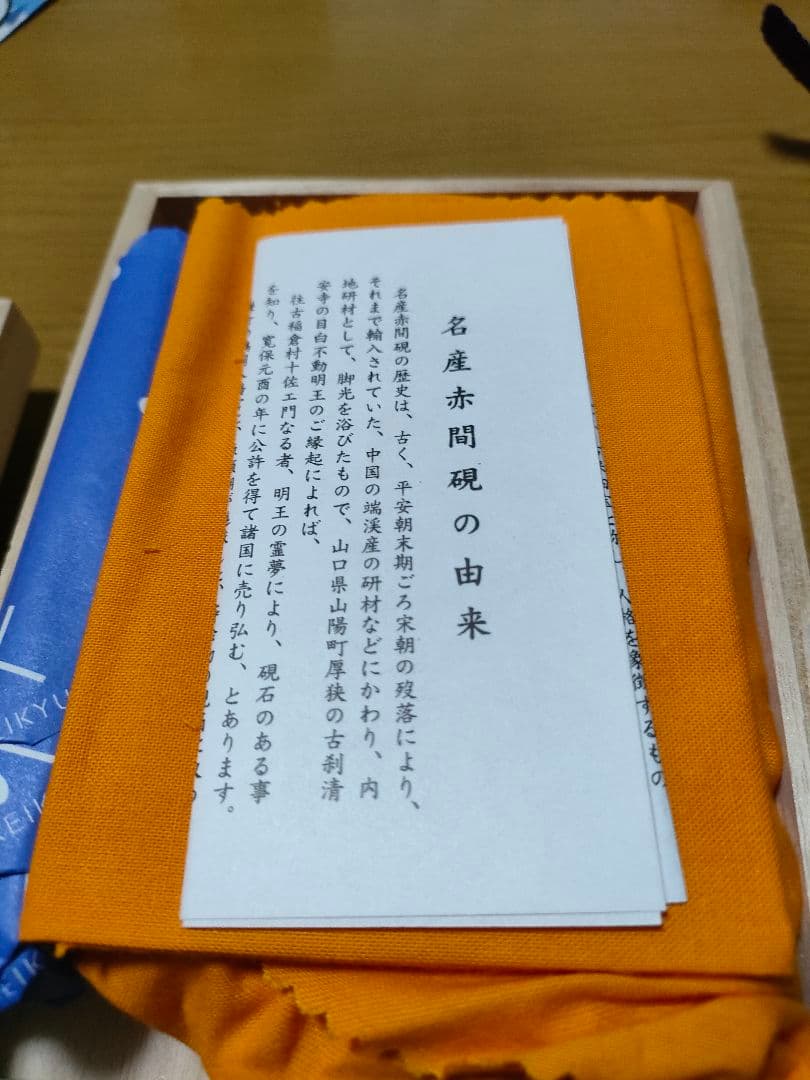 名産赤間硯の由来
名産赤間硯の歴史は、古く、平安朝末期ごろ宋朝の歿落により、
それまで輸入されていた、中国の端渓産の研材などにかわり、内
地研材として、脚光を浴びたもので、山口県山陽町厚狭の古刹清
安寺の目白不動明王のご縁起によれば、
往古稲倉村十佐エ門なる者、明王の霊夢により、硯石のある事
を知り、寛保元酉の年に公許を得て諸国に売り弘む、とあります。
人格を象徴するもの